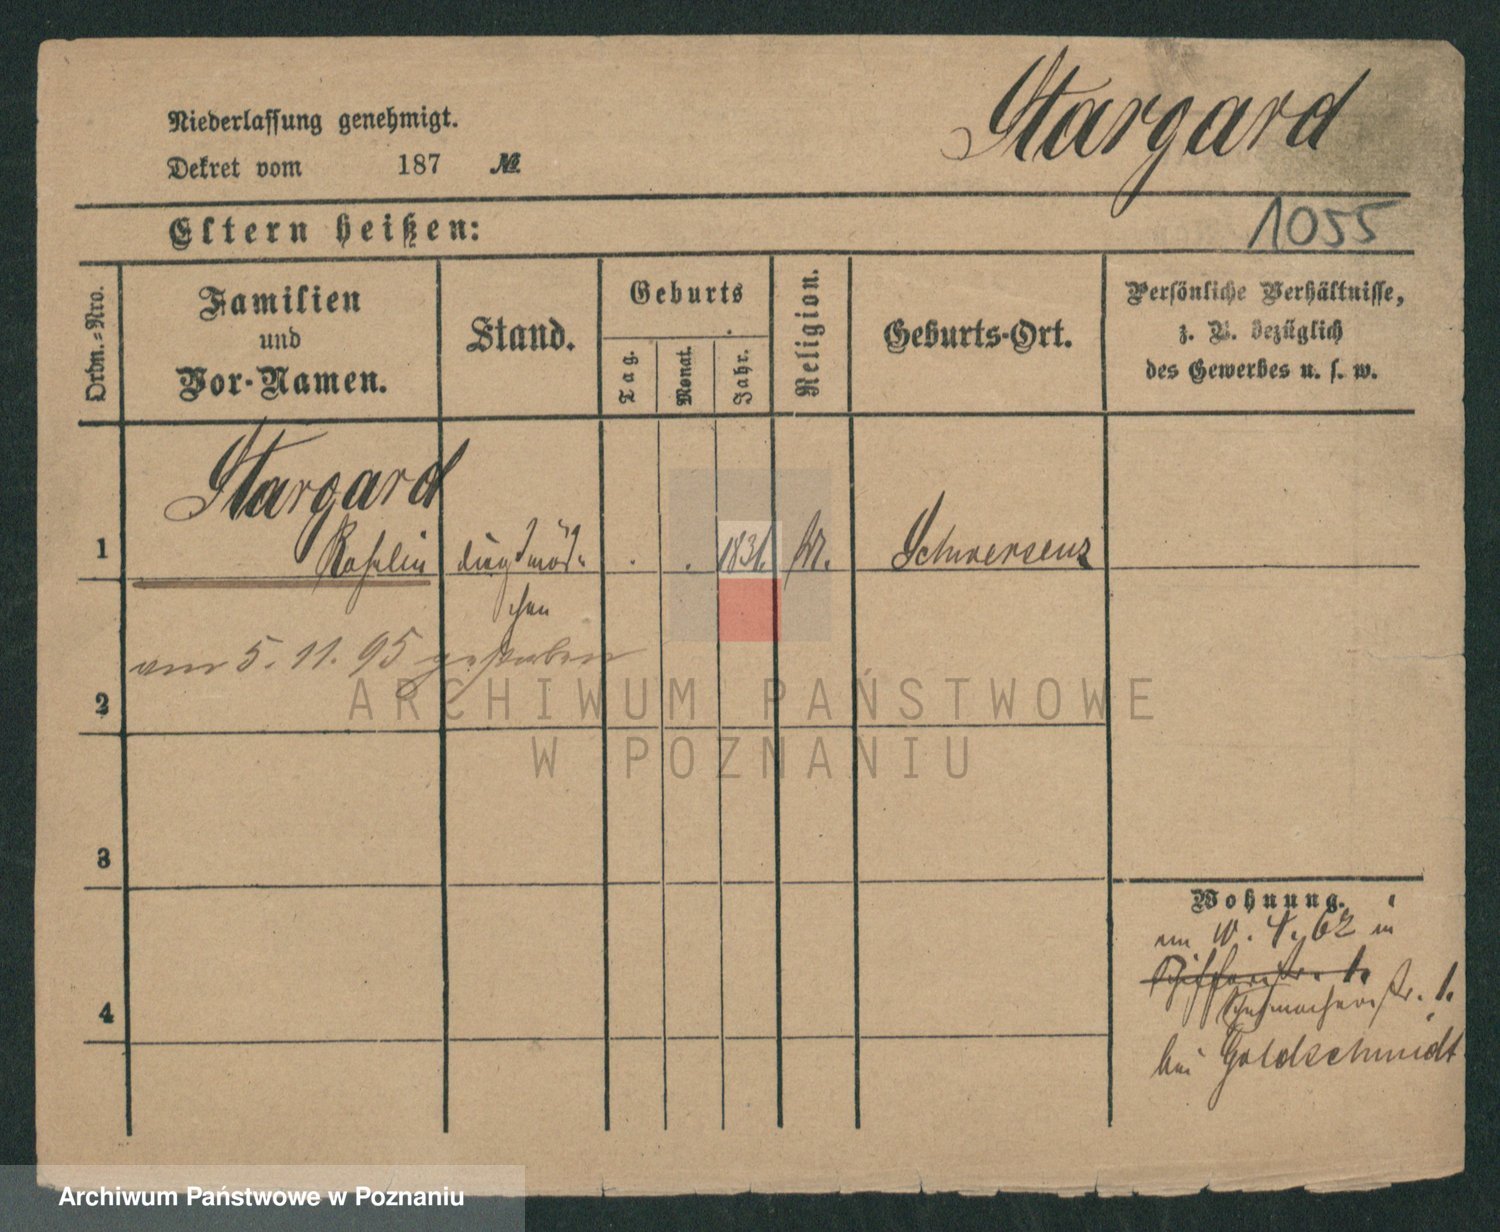 Stargard
Niederlassung genehmigt.
Dekret vom 187 №
1055
Eltern heißen:
Ordn.-Nro.
Familien
und
Vor-Namen.
Stand.
Geburts
Tag.
Monat.
Jahr.
Religion.
Geburts-Ort.
Persönliche Verhältnisse,
z. B. bezüglich
des Gewerbes u. s. w.
Stargard
1 Rosalie dienstmäd- 1831. Schwersenz
chen
am 5. 11. 95 gestorben
2
3
4
Wohnung.
62 in
Schifferstr. 1.
Schuhmacherstr. 1.
bei Goldschmidt
ARCHIWUM PAŃSTWOWE
W POZNANIU
Archiwum Państwowe w Poznaniu